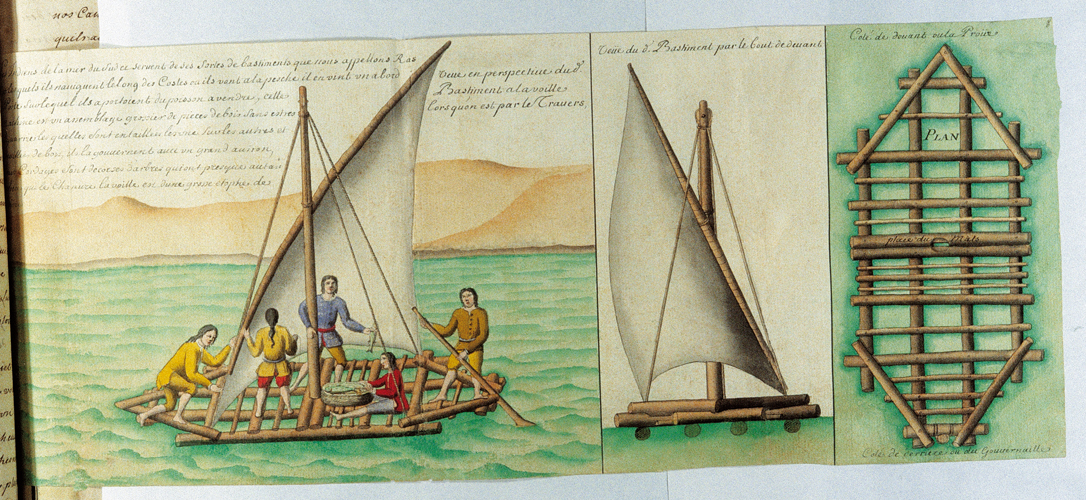 nos Cas
quelra
dedans de la mer du Sud ce servent de ses Sortes de bastiments que nous appellons Ras
lesquels ils nauiguent le long des Costes ou ils vont a la pesche il en vint vn a bord
sur lequel ils aportoient du poisson a vendre, cette
machine est vn assemblage grossier de pieces de bois sans estres
les quelles sont entaillées les vne sur les autres et
de bois, et la gouvernent auec vn grand auiron,
Cordages sont decorces darbres qui font presque autant
que le Chanure la voille est dune grosse etophe de
Veüe en perspective du d.
Bastiment a la voille
lors quon est par le Travers,
Veüe du d. Bastiment par le bout de deuant
8
Coté de deuant ou la Proüe
PLAN
place du Mats
Coté de derriere ou du Gouvernaille